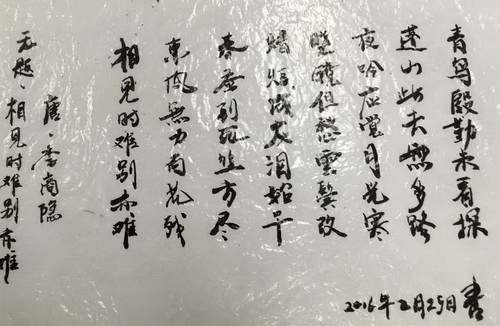 无题·相见时难别亦难
唐·李商隐
相见时难别亦难
東风無力百花残
春蚕到死丝方尽
蜡炬成灰泪始干
晓镜但愁雲鬓改
夜吟应觉月光寒
蓬山此去無多路
青鸟殷勤为看探
2016年2月25日 書